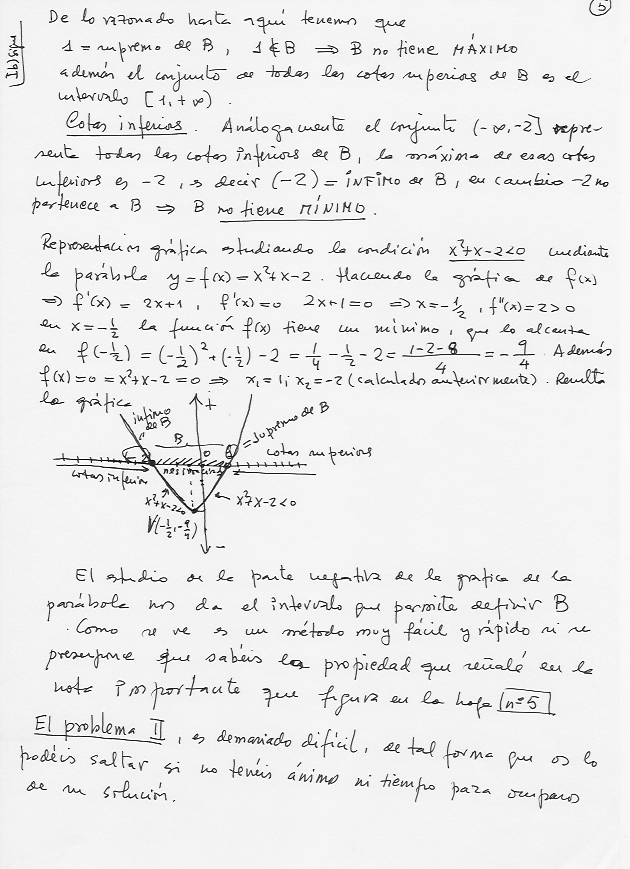 5
De lo razonado hasta aquí tenemos que
1 = supremo de B, 1 ∉ B ⇒ B no tiene MÁXIMO
además el conjunto de todas las cotas superios de B es el
intervalo [1, +∞).
Cotas inferios. Análogamente el conjunto (-∞, -2] repre-
senta todas las cotas inferiors de B, la máxima de esas cotas
inferiors es -2, es decir (-2) = ÍNFIMO de B, en cambio -2 no
pertenece a B ⇒ B no tiene MÍNIMO.
Representación gráfica estudiando la condición x²+x-2<0 mediante
la parábola y = f(x) = x²+x-2. Haciendo la gráfica de f(x)
⇒ f'(x) = 2x+1, f'(x)=0 2x+1=0 ⇒ x=-1/2, f''(x)=2>0
en x=-1/2 la función f(x) tiene un mínimo, que lo alcanza
en f(-1/2) = (-1/2)²+(-1/2)-2 = 1/4-1/2-2 = (1-2-8)/4 = -9/4. Además
f(x)=0 = x²+x-2=0 ⇒ x₁=1; x₂=-2 (calculados anteriormente). Resulta
la gráfica
ínfimo de B
B
+
= Supremo de B
-2
0
1
cotas superiors
cotas inferior
x²+x-2<0
x²+x-2<0
V(-1/2, -9/4)
-
El estudio de la parte negativa de la gráfica de la
parábola nos da el intervalo que permite definir B
. Como se ve es un método muy fácil y rápido si se
presupone que sabéis la propiedad que señalé en la
nota importante que figura en la hoja nº 5
El problema II, es demasiado difícil, de tal forma que os lo
podéis saltar si no tenéis ánimo ni tiempo para ocuparos
de su solución.